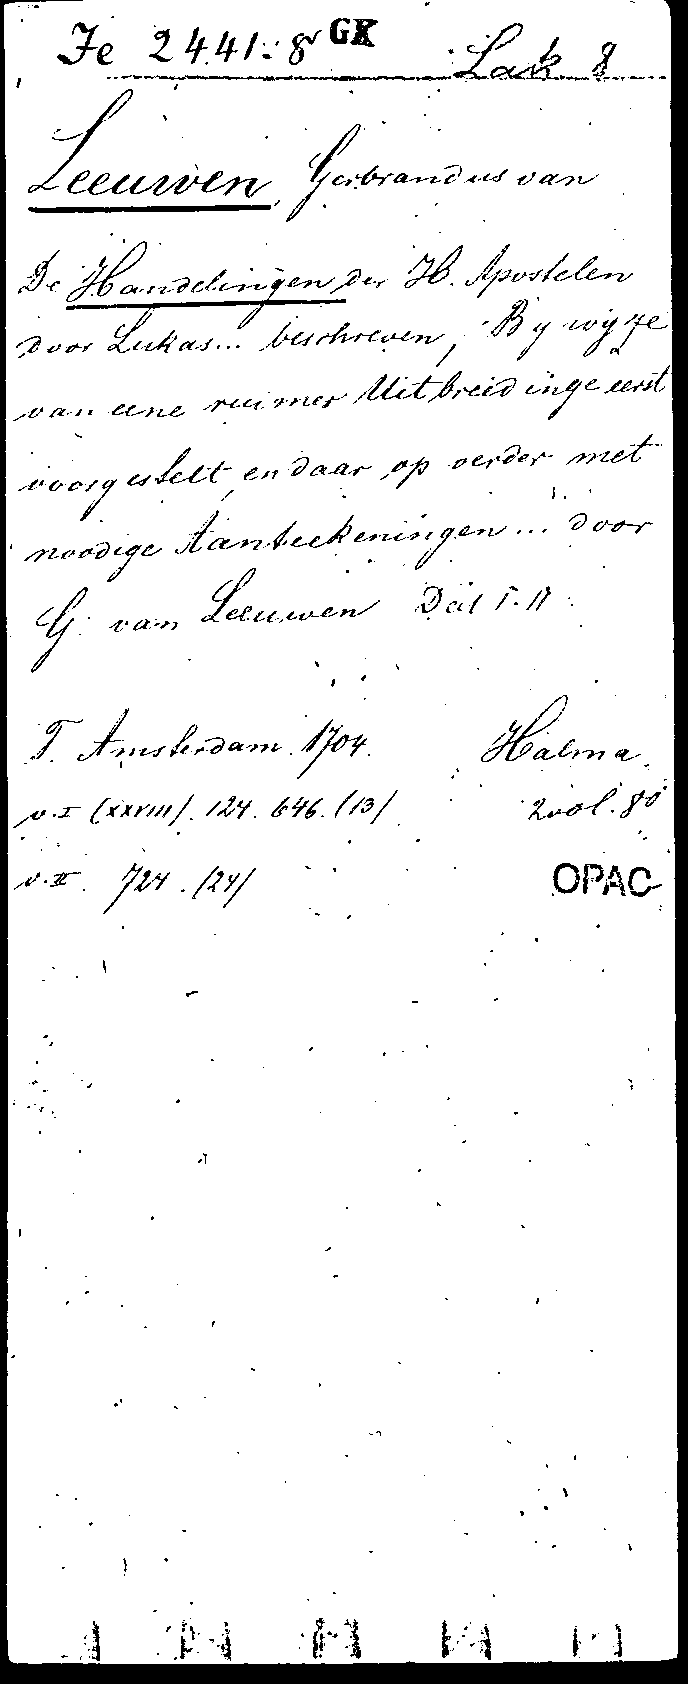 Je 2441:8 GK Lak 8
Leeuwen, Gerbrandus van
De Handelingen der H. Apostelen
door Lukas... beschreven, By wyze
van eene ruimer Uitbreidinge eerst
voorgestelt, en daar op verder met
noodige Aanteekeningen... door
G. van Leeuwen Deel I-II
T. Amsterdam. 1704. Halma.
v. I (XXVIII). 124. 646. (13) 2 vol. 80
v. II. 724. (24)
OPAC